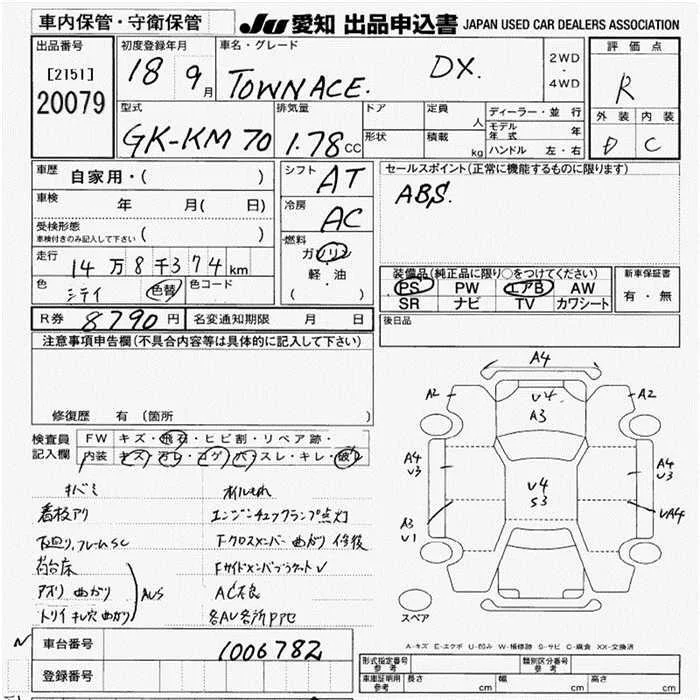 車内保管・守衛保管
JU 愛知 出品申込書 JAPAN USED CAR DEALERS ASSOCIATION
出品番号
[2151]
20079
初度登録年月
18 9月
車名・グレード
TOWNACE. DX.
2WD
・
4WD
評価点
R
外装 内装
D C
型式
GK-KM70
排気量
1.78CC
ドア
形状
定員
人
積載
kg
ディーラー・並行
モデル年式 年
ハンドル 左・右
車歴
自家用・( )
車検
年 月( 日)
受検形態
車検付きのみ記入して下さい ( )
走行
14万8千374km
色
シテイ 色替
色コード
シフト
AT
冷房
AC
燃料
ガソリン
・
軽・油
( )
セールスポイント(正常に機能するものに限ります)
ABS.
装備品(純正品に限り○をつけてください)
PS PW エアB AW
SR ナビ TV カワシート
新車保証書
有・無
R券 8790円
名変通知期限 月 日
後日品
注意事項申告欄(不具合内容等は具体的に記入して下さい)
修復歴 有(箇所 )
検査員記入欄
FW キズ・飛石・ヒビ割・リペア跡・
内装 キズ・汚レ・コゲ・穴・スレ・キレ・破レ
キバミ
看板アリ
下廻り,フレームSC
荷台床
アオリ曲がり
トリイ キレ穴曲がり
AUS
オイルもれ
エンジンチェックランプ点灯
Fクロスメンバー曲がり修復
FサイドメンバブラケットV
AC不良
各AU各所PPセ
A4
A2
U4
A3
A2
A4
U3
U4
S3
A4
U3
A3
U1
UA4
スペア
A-キズ E-エクボ U-凹み W-補修跡 S-サビ C-腐食 XX-交換済
N
車台番号
1006782
登録番号
形式指定番号
参考
類別区分番号
参考
車庫証明用
参考
長さ cm 幅 cm 高さ cm